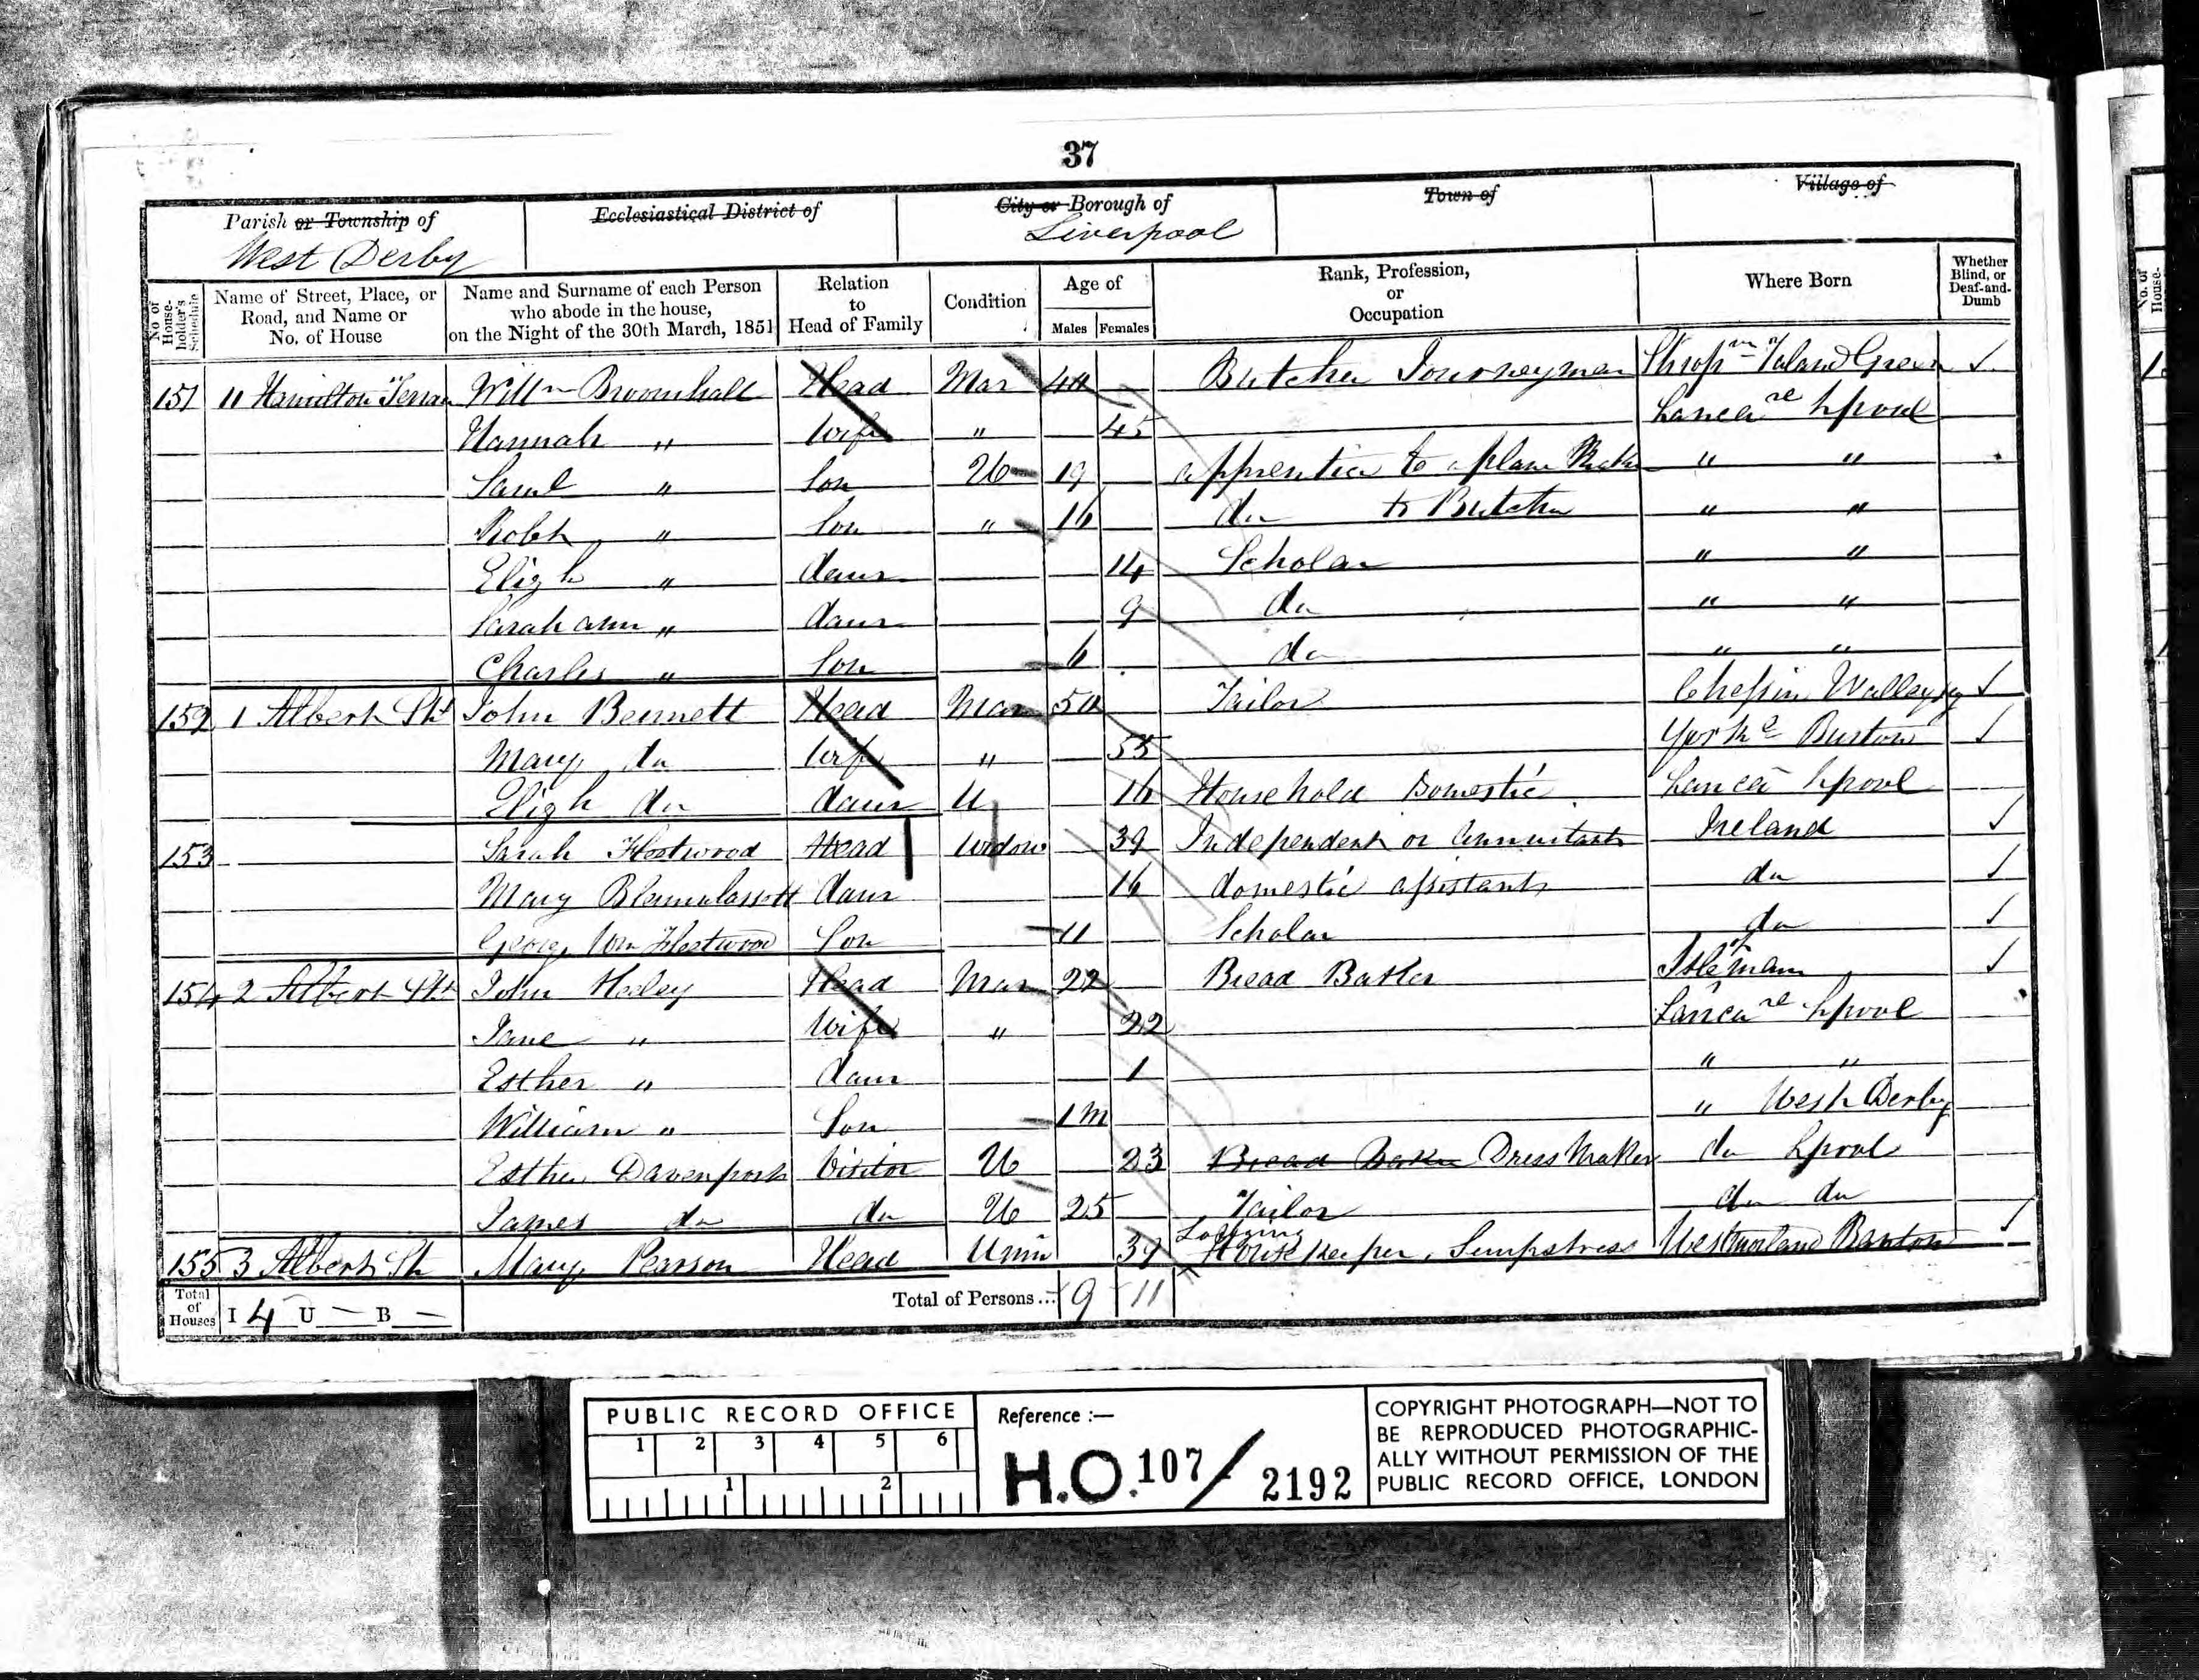 37
Parish or Township of West Derby
Ecclesiastical District of
City or Borough of Liverpool
Town of
Village of
No. of House-holder's Schedule
Name of Street, Place, or Road, and Name or No. of House
Name and Surname of each Person who abode in the house, on the Night of the 30th March, 1851
Relation to Head of Family
Condition
Age of
Males Females
Rank, Profession, or Occupation
Where Born
Whether Blind, or Deaf-and-Dumb
151 11 Hamilton Terrace Willm Broomhall Head Mar 44 Butcher Journeyman Green
Hannah " Wife " 45 Lpool
Saml " Son U 19 apprentice to a plane Maker " "
Robt " Son " 16 do to Butcher " "
Elizh " daur 14 Scholar " "
Sarah ann " daur 9 do " "
Charles " Son 6 do " "
152 1 Albert St John Bennett Head Mar 50 Tailor
Mary do Wife " 55 Burton
Elizh do daur U 16 Household Domestic Lpool
153 Sarah Fleetwood Head Widow 39 Independent or Annuitant Ireland
Mary daur 16 domestic assistant do
George Wm Fleetwood Son 11 Scholar do
154 2 Albert St John Head Mar 22 Bread Baker Isle of Man
Jane " Wife " 22 Lpool
Esther " daur 1 " "
William " Son 1m " West Derby
Esther Davenport Visitor U 23 Bread Baker Dress Maker do Lpool
James do do U 25 Tailor do do
155 3 Albert St Mary Pearson Head Unm 39 Lodging House Keeper, Sempstress Westmorland Barton
Total of Houses I 4 U — B —
Total of Persons... 9 11
PUBLIC RECORD OFFICE
1 2 3 4 5 6
1 2
Reference :—
H.O. 107/2192
COPYRIGHT PHOTOGRAPH—NOT TO
BE REPRODUCED PHOTOGRAPHIC-
ALLY WITHOUT PERMISSION OF THE
PUBLIC RECORD OFFICE, LONDON
No. of House-